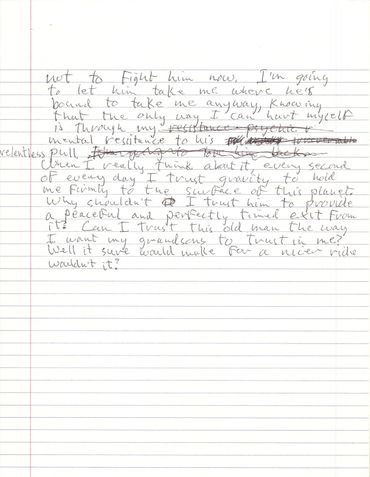 not to fight him now, I'm going
to let him take me where he's
bound to take me anyway, knowing
that the only way I can hurt myself
is through my resistance - psychic &
mental resistence to his irreversable
relentless pull. I'm going to love him back
When I really think about it, every second
of every day I trust gravity to hold
me firmly to the surface of this planet.
Why shouldn't I trust him to provide
a peaceful and perfectly timed exit from
it? Can I trust this old man the way
I want my grandsons to trust in me?
Well it sure would make for a nicer ride
wouldn't it?